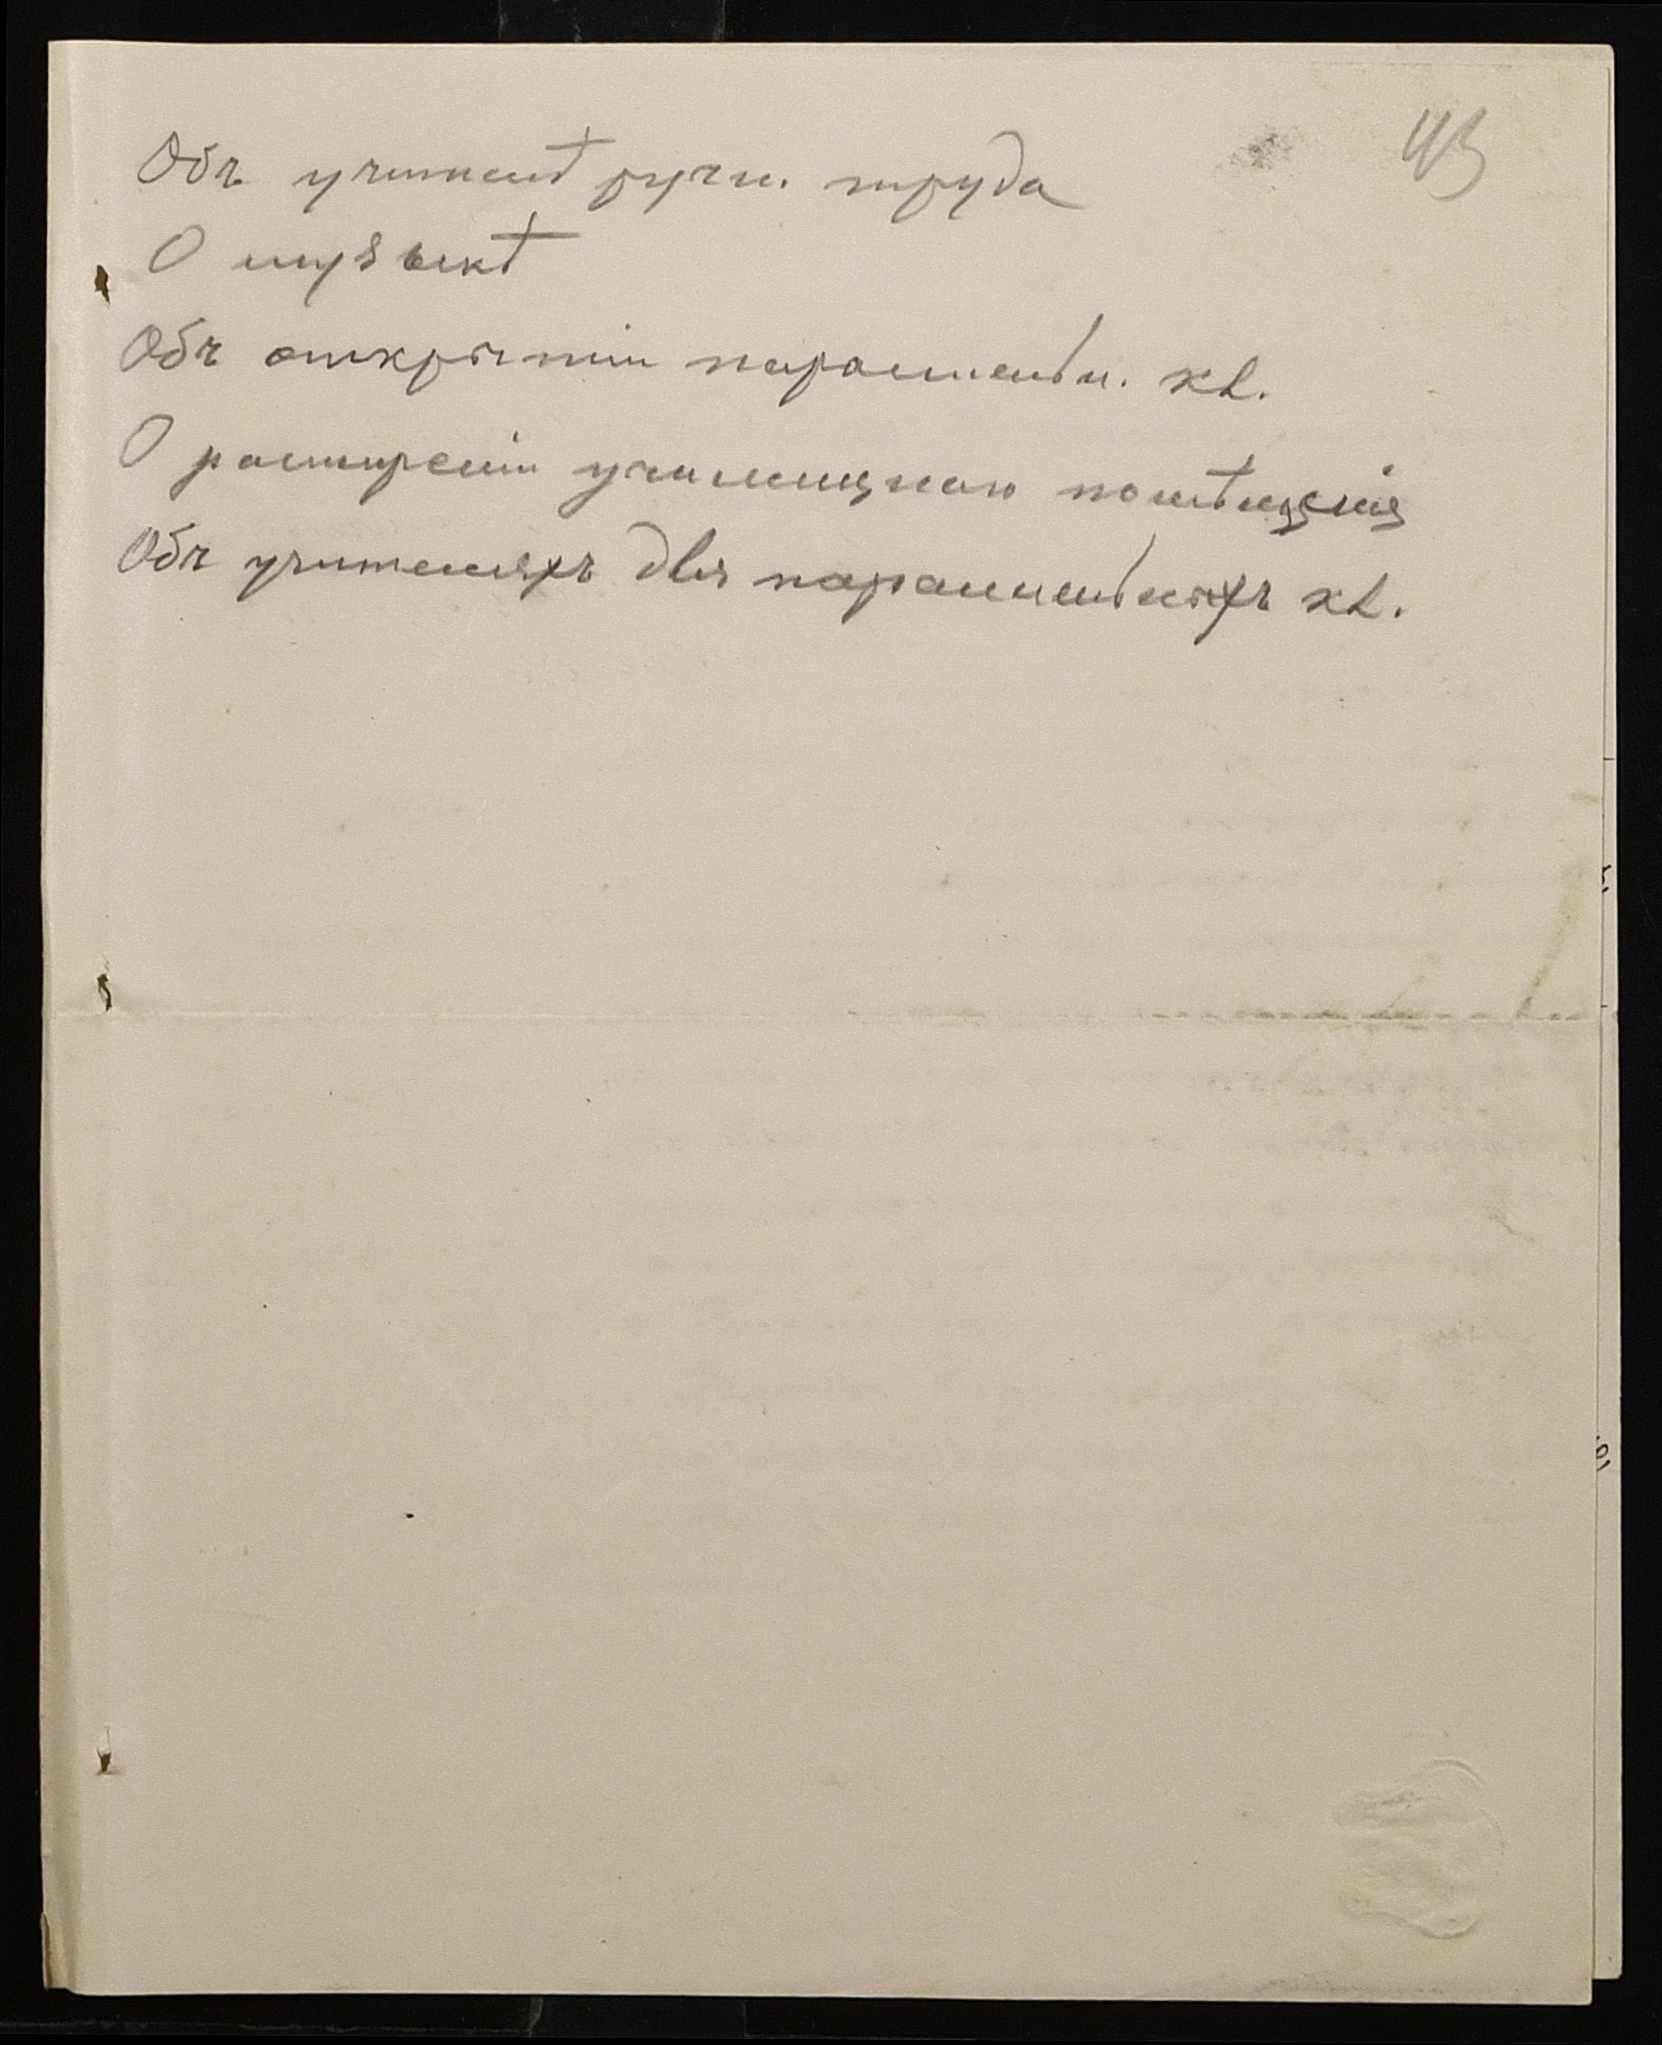 43
Объ учителѣ ручн. труда
О музыкѣ
Объ открытіи параллельн. кл.
О расширеніи училищнаго помѣщенія
Объ учителяхъ для параллельныхъ кл.